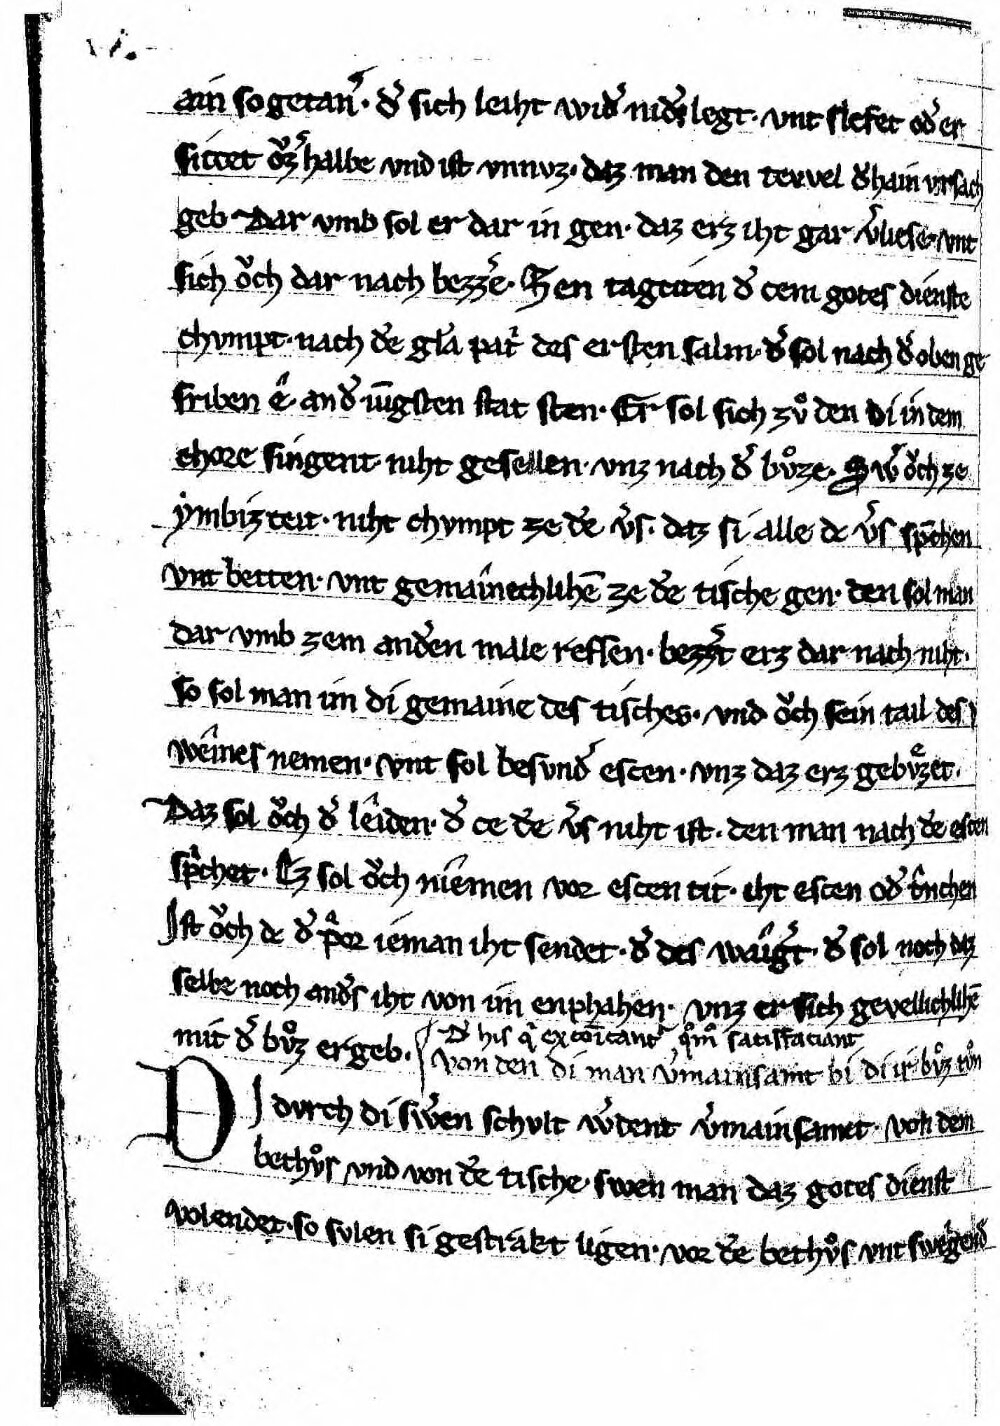 vi.
ain sogetanˀ. dˀ sich leiht widˀ nidˀ legt. vnt slefet odˀ er
sittet vͦzˀhalbe vnd ist vnnvz. daz man den tevvel dˀhain vrsach
geb Dar vmb sol er dar in gen. daz erz iht gar vˀliese. vnt
sich oͮch dar nach bezzˀe. Hen tagtiten dˀ cem gotes dienste
chvmpt. nach dˀe gl̄a patˀ des ersten salm. dˀ sol nach dˀ oben ge
sriben ê andˀ iv̄gsten stat sten. Er sol sich zvͦ den di in dem
chore singent. niht gesellen. vnz nach dˀ bvͦze. Swˀ oͮch ze
ymbizteit. niht chvmpt ze dˀe vˀs. daz si alle de vˀs sp̄chen
vnt betten. vnt gemaînechlihē ze dˀe tische gen. den sol man
dar vmb zem andˀen male reffen. bezzˀt erz dar nach niht.
so sol man im di gemaine des tisches. vnd oͮch sein tail des
weînes nemen. vnt sol besvndˀ escen. vnz daz erz gebvͤzet.
Daz sol oͮch dˀ leîden. dˀ ce dˀe vˀs niht ist. den man nach dˀe escen
spˀchet. Ez sol oͮch niêmen vor escen tit. iht escen odˀ tˀnchen
Ist oͮch de dˀ pˀor ieman iht sendet. dˀ des waîgˀt. dˀ sol noch daz
selbe noch andˀs iht von im enphahen. vnz er sich gevellichlihē
mit dˀ bvͦz ergeb. Dˀ his qˀ excōicantˀ qͦmͦ satisfaciant
von den di man vˀmainsamt bi di ir bvͦz tvͦn
DI dvrch di swˀen schvlt wˀdent vˀmainsamet. von dem
bethvͦs vnd von dˀe tische. swen man daz gotes dienst
volendet. so svlen si gestrakt ligen. vor dˀe bethvͦs vnt swêgendˀ